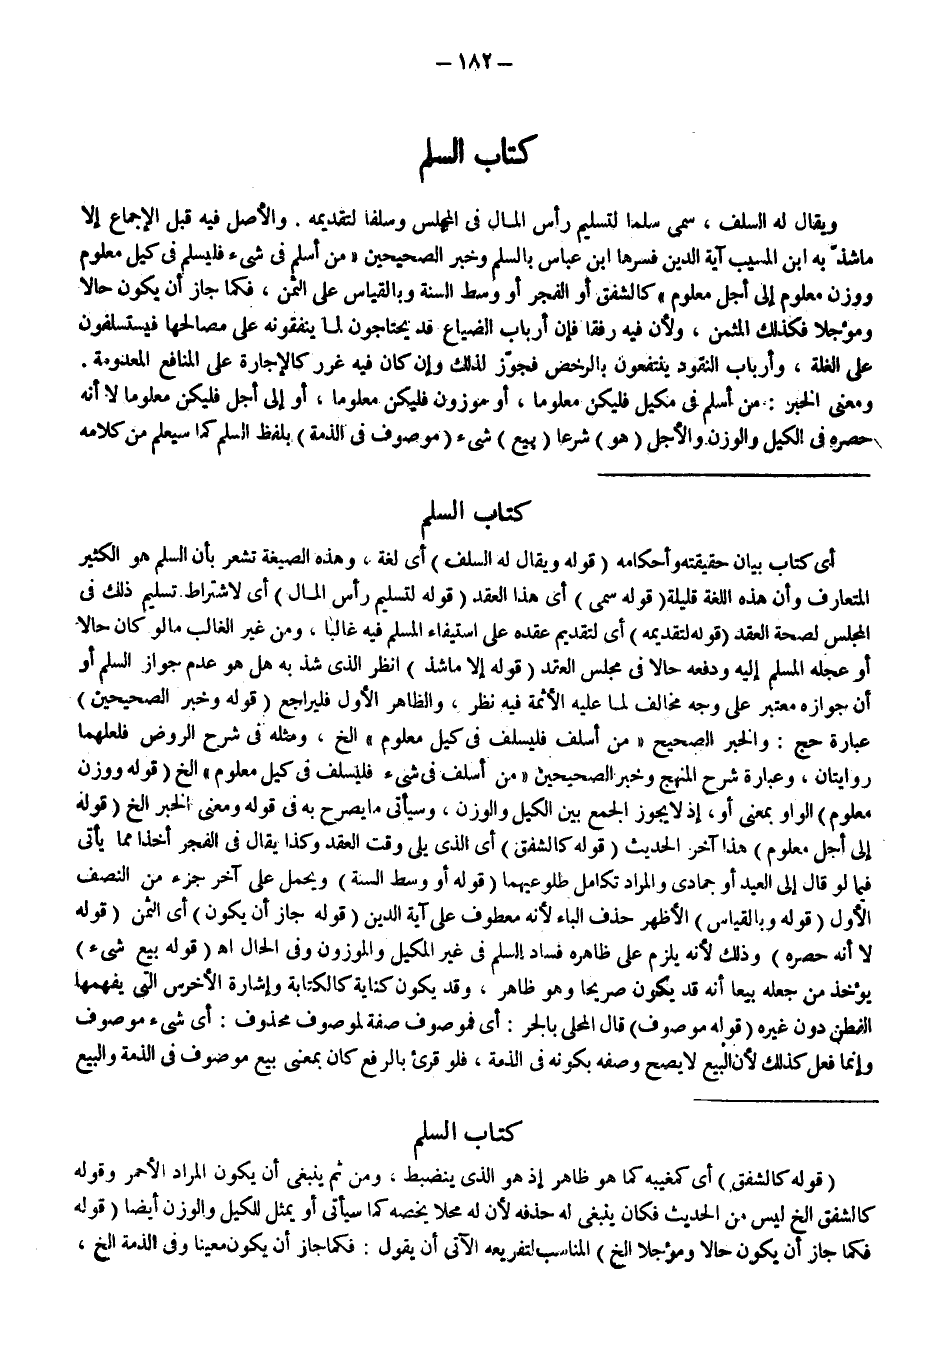 - ١٨٢ -
كتاب السلم
ويقال له السلف ، سمى سلما لتسليم رأس المال فى المجلس وسلفا لتقديمه . والأصل فيه قبل الإجماع إلا
ماشذّ به ابن المسيب آية الدين فسرها ابن عباس بالسلم وخبر الصحيحين « من أسلم فى شىء فليسلم فى كيل معلوم
ووزن معلوم إلى أجل معلوم » كالشفق أو الفجر أو وسط السنة وبالقياس على الثمن ، فكما جاز أن يكون حالا
ومؤجلا فكذلك المثمن ، ولأن فيه رفقا فإن أرباب الضياع قد يحتاجون لما ينفقونه على مصالحها فيستسلفون
على الغلة ، وأرباب النقود ينتفعون بالرخص فجوّز لذلك وإن كان فيه غرر كالإجارة على المنافع المعدومة .
ومعنى الخبر : من أسلم فى مكيل فليكن معلوما ، أو موزون فليكن معلوما ، أو إلى أجل فليكن معلوما لا أنه
حصره فى الكيل والوزن والأجل ( هو ) شرعا ( بيع ) شىء ( موصوف فى الذمة ) بلفظ السلم كما سيعلم من كلامه
كتاب السلم
أى كتاب بيان حقيقته وأحكامه ( قوله ويقال له السلف ) أى لغة ، وهذه الصيغة تشعر بأن السلم هو الكثير
المتعارف وأن هذه اللغة قليلة ( قوله سمى ) أى هذا العقد ( قوله لتسليم رأس المال ) أى لاشتراط تسليم ذلك فى
المجلس لصحة العقد ( قوله لتقديمه ) أى لتقديم عقده على استيفاء المسلم فيه غالبا ، ومن غير الغالب مالو كان حالا
أو عجله المسلم إليه ودفعه حالا فى مجلس العقد ( قوله إلا ماشذ ) انظر الذى شذ به هل هو عدم جواز السلم أو
أن جوازه معتبر على وجه مخالف لما عليه الأئمة فيه نظر ، والظاهر الأول فليراجع ( قوله وخبر الصحيحين )
عبارة حج : والخبر الصحيح « من أسلف فليسلف فى كيل معلوم » الخ ، ومثله فى شرح الروض فلعلهما
روايتان ، وعبارة شرح المنهج وخبر الصحيحين « من أسلف فى شىء فليسلف فى كيل معلوم » الخ ( قوله ووزن
معلوم ) الواو بمعنى أو ، إذ لايجوز الجمع بين الكيل والوزن ، وسيأتى مايصرح به فى قوله ومعنى الخبر الخ ( قوله
إلى أجل معلوم ) هذا آخر الحديث ( قوله كالشفق ) أى الذى يلى وقت العقد وكذا يقال فى الفجر أخذا مما يأتى
فيما لو قال إلى العيد أو جمادى والمراد تكامل طلوعيهما ( قوله أو وسط السنة ) ويحمل على آخر جزء من النصف
الأول ( قوله وبالقياس ) الأظهر حذف الباء لأنه معطوف على آية الدين ( قوله جاز أن يكون ) أى الثمن ( قوله
لا أنه حصره ) وذلك لأنه يلزم على ظاهره فساد السلم فى غير المكيل والموزون وفى الحال اه ( قوله بيع شىء )
يؤخذ من جعله بيعا أنه قد يكون صريحا وهو ظاهر ، وقد يكون كناية كالكتابة وإشارة الأخرس التى يفهمها
الفطن دون غيره ( قوله موصوف ) قال المحلى بالجر : أى فموصوف صفة لموصوف محذوف : أى شىء موصوف
وإنما فعل كذلك لأن البيع لايصح وصفه بكونه فى الذمة ، فلو قرئ بالرفع كان بمعنى بيع موصوف فى الذمة والبيع
كتاب السلم
( قوله كالشفق ) أى كمغيبه كما هو ظاهر إذ هو الذى ينضبط ، ومن ثم ينبغى أن يكون المراد الأحمر وقوله
كالشفق الخ ليس من الحديث فكان ينبغى له حذفه لأن له محلا يخصه كما سيأتى أو يمثل للكيل والوزن أيضا ( قوله
فكما جاز أن يكون حالا ومؤجلا الخ ) المناسب لتفريعه الآتى أن يقول : فكما جاز أن يكون معينا وفى الذمة الخ ،